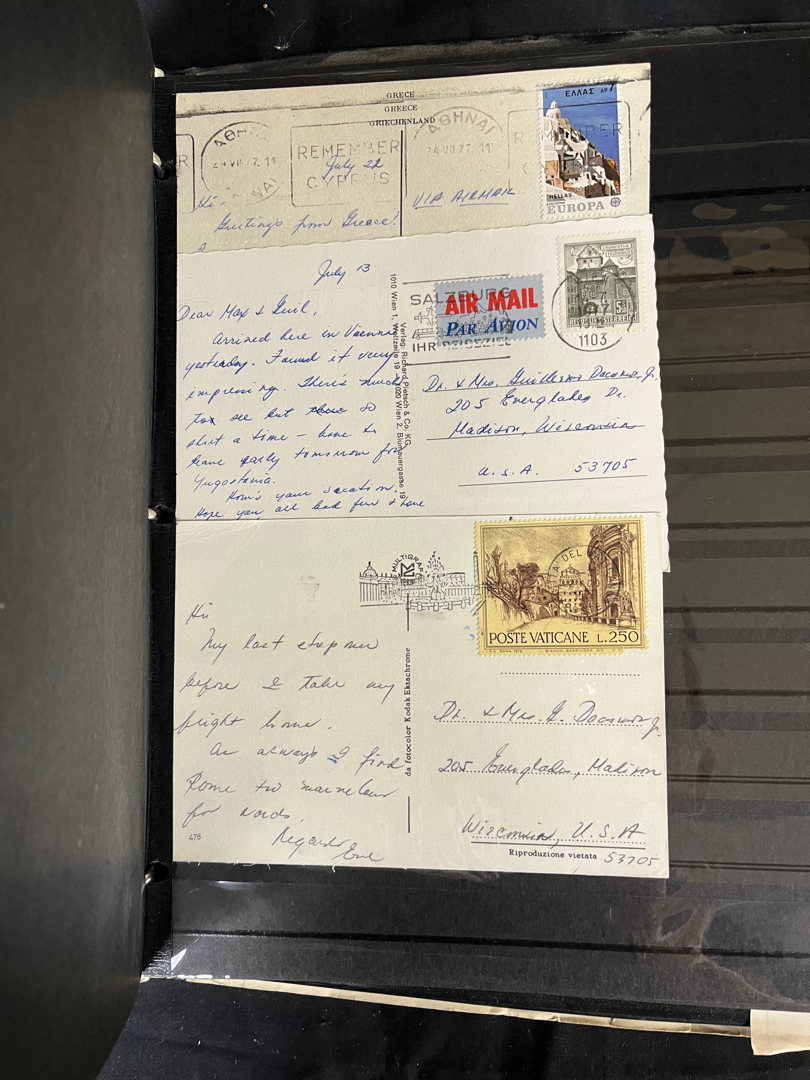 GRECE
GREECE
GRIECHENLAND
ΑΘΗΝΑΙ
24 VII 77. 11
REMEMBER
CYPRUS
ΑΘΗΝΑΙ
24 VII 77. 11
REMEMBER
ΕΛΛΑΣ ΔΡ 7
HELLAS
EUROPA
July 22
VIA AIRMAIL
Hi
Greetings from Greece!
July 13
Dear Max &
Arrived here in Vienna
yesterday. Found it very
impressing. There's much
too see but so
short a time – have to
leave early tomorrow for
Yugoslavia.
How's your vacation.
Hope you all had fun & have
Verlag: Richard Pietsch & Co. KG,
1010 Wien 1, Wollzeile 19 – 1020 Wien 2, Blumauergasse 19
SALZBURG
IHR REISEZIEL
AIR MAIL
PAR AVION
REPUBLIK ÖSTERREICH
1103
Dr. & Mrs. Guillermo Jr.
205 Everglades Dr.
Madison, Wisconsin
U.S.A. 53705
MULTIGRAF
POSTE VATICANE L.250
Hi
My last stop over
before I take my
flight home.
As always I find
Rome too marvelous
for words.
Regards
da fotocolor Kodak Ektachrome
478
Dr. & Mrs. G. Jr.
205 Everglades, Madison
Wisconsin, U.S.A
53705
Riproduzione vietata